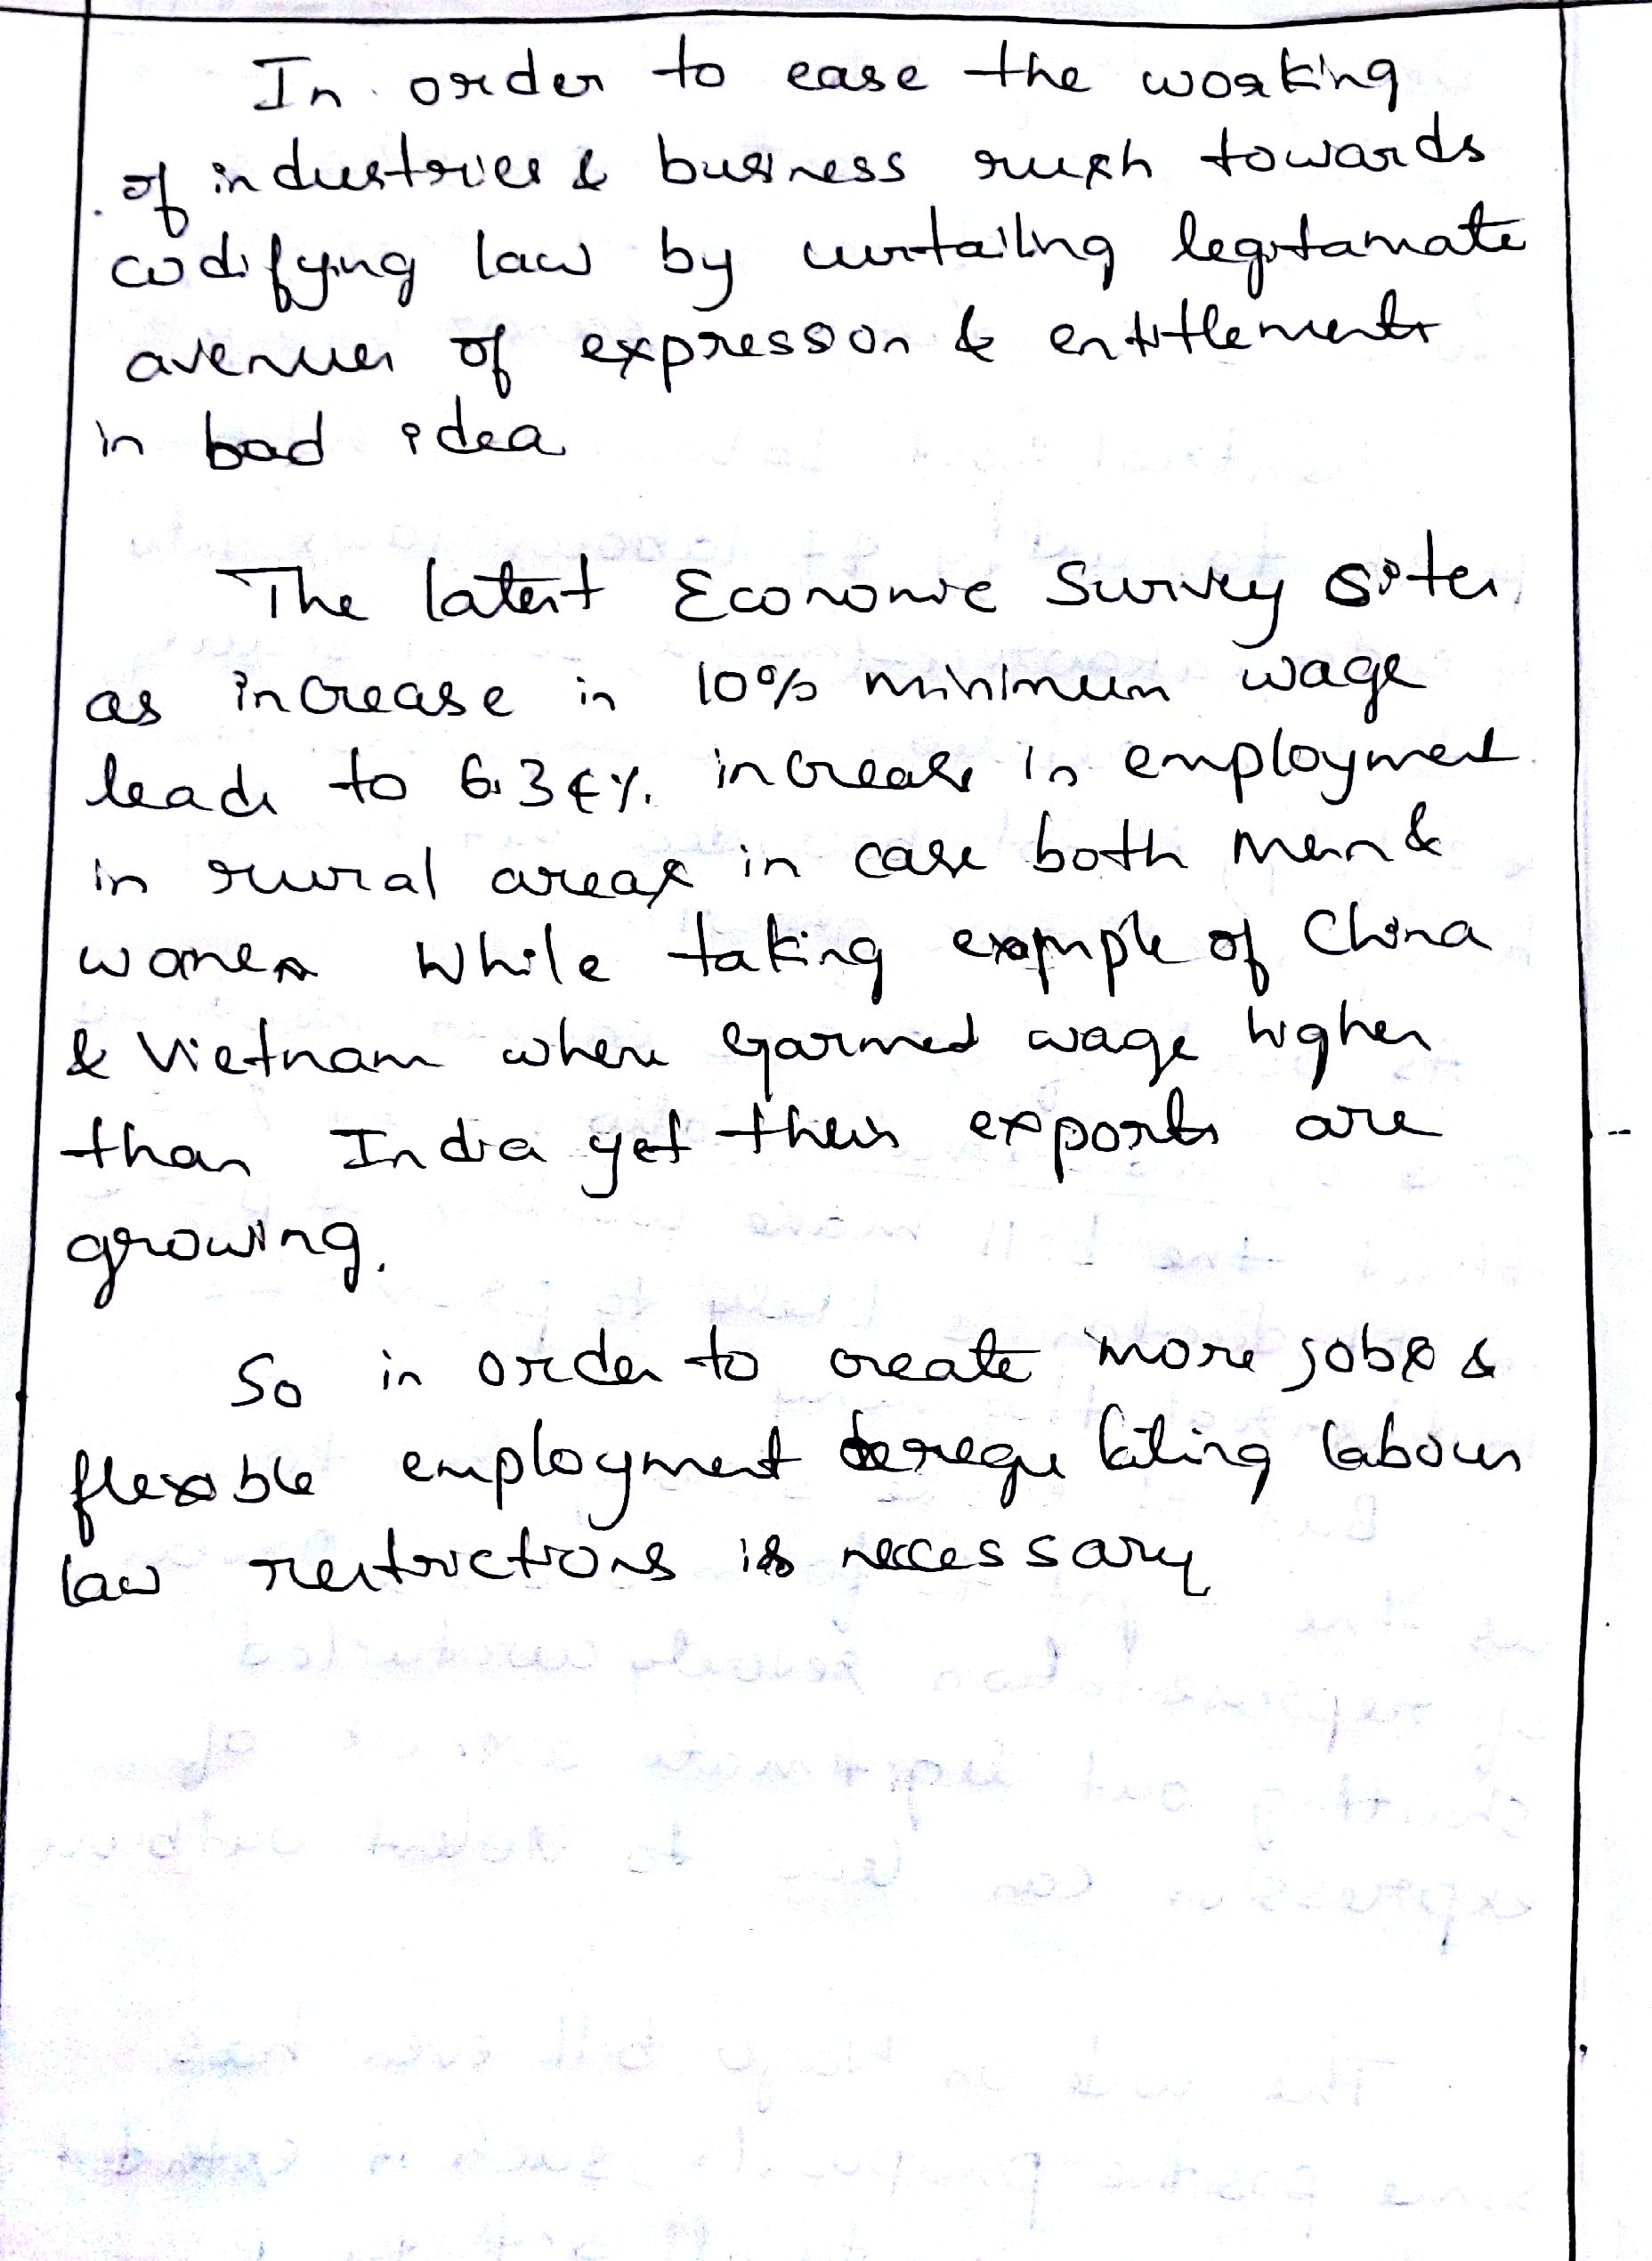 In order to ease the working
of industries & business rush towards
codifying law by curtailing legitamate
avenues of expresson & entitlements
in bad idea
The latest Economic Survey sites
as increase in 10% minimum wage
leads to 6.3 % increase in employment
in rural areas in case both men &
women While taking example of China
& Vietnam where garmed wage higher
than India yet their exports are
growing.
So in order to create more jobs &
flexible employment deregulating labour
law restrictions is neccessary